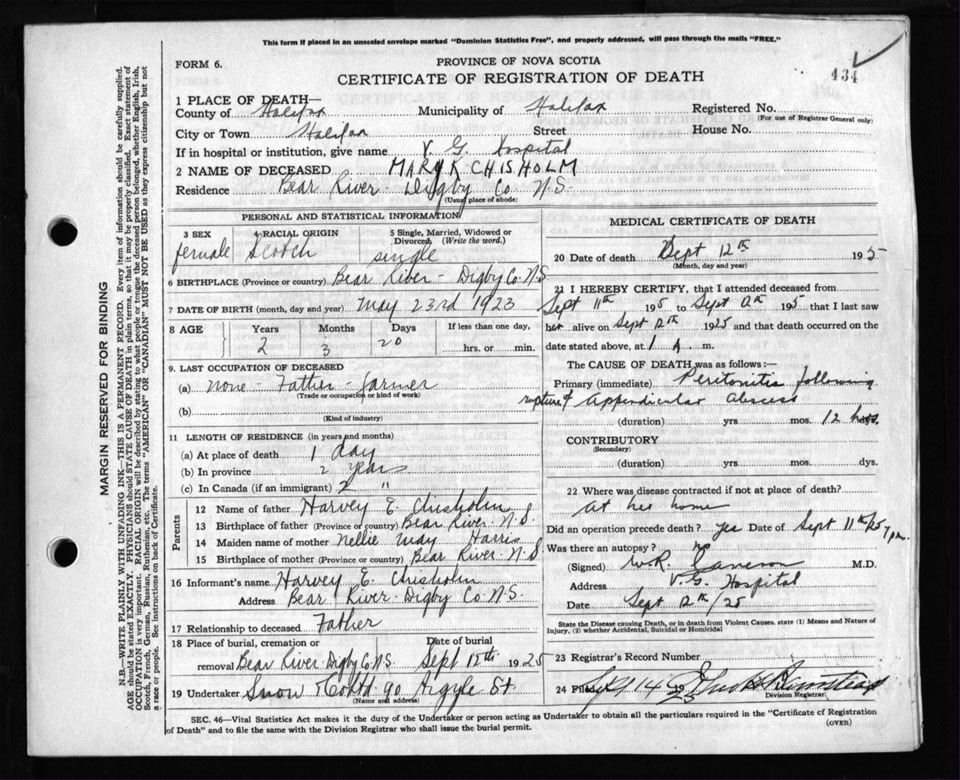 This form if placed in an unsealed envelope marked "Dominion Statistics Free", and properly addressed, will pass through the mails "FREE."
FORM 6.
PROVINCE OF NOVA SCOTIA
CERTIFICATE OF REGISTRATION OF DEATH
434
1 PLACE OF DEATH—
County of Halifax Municipality of Halifax Registered No.
(For use of Registrar General only)
City or Town Halifax Street House No.
If in hospital or institution, give name V. G. Hospital
2 NAME OF DECEASED MARY K CHISHOLM
Residence Bear River - Digby Co N.S.
(Usual place of abode)
PERSONAL AND STATISTICAL INFORMATION
3 SEX 4 RACIAL ORIGIN 5 Single, Married, Widowed or Divorced (Write the word.)
female Scotch single
6 BIRTHPLACE (Province or country) Bear River - Digby Co. N.S
7 DATE OF BIRTH (month, day and year) May 23rd 1923
8 AGE Years Months Days If less than one day,
2 3 20 hrs. or min.
9. LAST OCCUPATION OF DECEASED
(a) none - Father - farmer
(Trade or occupation or kind of work)
(b)
(Kind of industry)
11 LENGTH OF RESIDENCE (in years and months)
(a) At place of death 1 day
(b) In province 2 years
(c) In Canada (if an immigrant) 2 "
Parents
12 Name of father Harvey E. Chisholm
13 Birthplace of father (Province or country) Bear River. N.S.
14 Maiden name of mother Nellie May Harris
15 Birthplace of mother (Province or country) Bear River. N.S
16 Informant's name Harvey E. Chisholm
Address Bear River - Digby Co N.S.
17 Relationship to deceased Father
18 Place of burial, cremation or removal Bear River Digby Co N.S. Date of burial Sept 15th 1925
19 Undertaker Snow & Co Ltd. 90 Argyle St.
(Name and address)
MEDICAL CERTIFICATE OF DEATH
20 Date of death Sept 12th 1925
(Month, day and year)
21 I HEREBY CERTIFY, that I attended deceased from
Sept 11th 1925 to Sept 12th 1925 that I last saw
her alive on Sept 12th 1925 and that death occurred on
date stated above, at 1 A. m.
The CAUSE OF DEATH was as follows:—
Primary (immediate) Peritonitis following
rupture of Appendicular Abscess
(duration) yrs mos. 12 hrs.
CONTRIBUTORY
(Secondary)
(duration) yrs. mos. dys.
22 Where was disease contracted if not at place of death?
At her home
Did an operation precede death? yes Date of Sept 11th/25 7 pm.
Was there an autopsy? no
(Signed) W.R. Cameron M.D.
Address V.G. Hospital
Date Sept 12th/25
State the Disease causing Death, or in death from Violent Causes. state (1) Means and Nature of Injury, (2) whether Accidental, Suicidal or Homicidal
23 Registrar's Record Number
24 Filed Sept 14 1925
Division Registrar.
SEC. 46—Vital Statistics Act makes it the duty of the Undertaker or person acting as Undertaker to obtain all the particulars required in the "Certificate of Registration
of Death" and to file the same with the Division Registrar who shall issue the burial permit.
(OVER)
MARGIN RESERVED FOR BINDING
N.B.—WRITE PLAINLY WITH UNFADING INK—THIS IS A PERMANENT RECORD. Every item of information should be carefully supplied.
AGE should be stated EXACTLY. PHYSICIANS should STATE CAUSE OF DEATH in plain terms, so that it may be properly classified. Exact statement of
OCCUPATION is very important. RACIAL ORIGIN will be described by stating to what people or tongue the deceased person belonged, whether English, Irish,
Scotch, French, German, Russian, Ruthenian, etc. The terms "AMERICAN" OR "CANADIAN" MUST NOT BE USED as they express citizenship but not
a race or people. See instructions on back of Certificate.